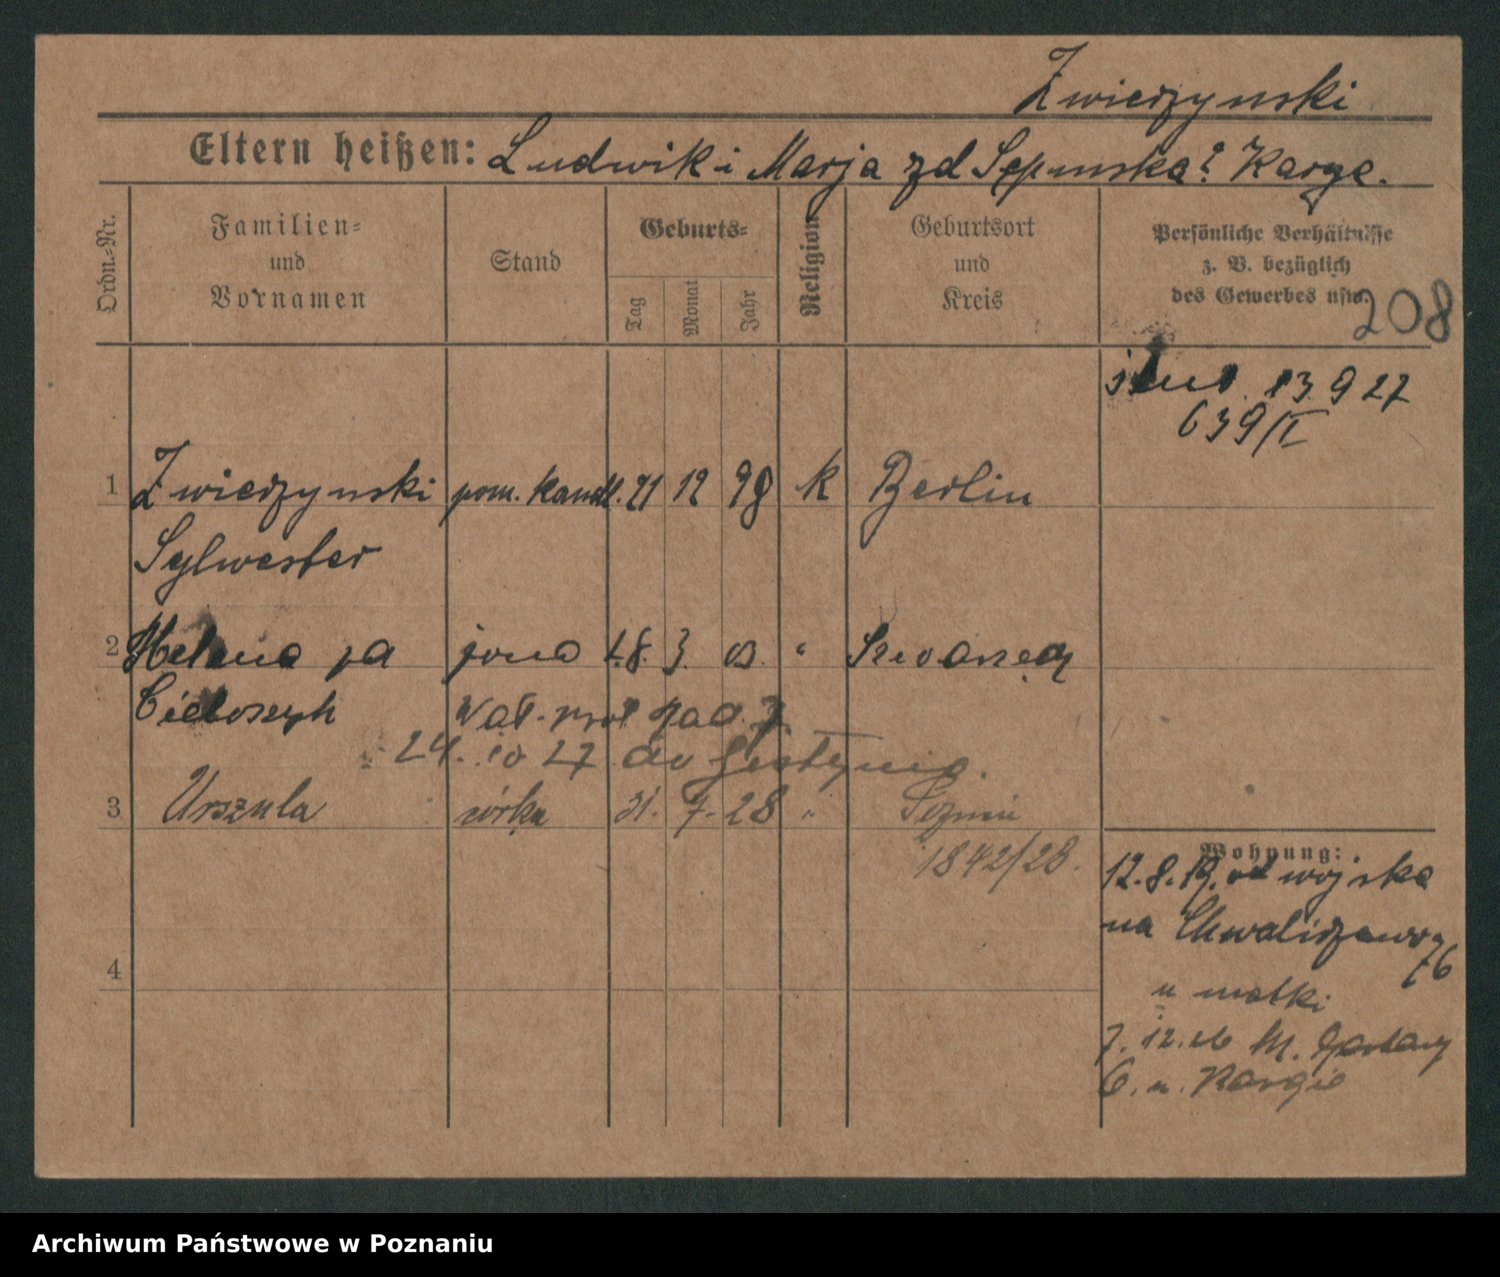 Zwierzynski
Eltern heißen: Ludwik i Marja zd Sępinska? Karge.
Ordn.-Nr.
Familien-
und
Vornamen
Stand
Geburts-
Tag
Monat
Jahr
Religion
Geburtsort
und
Kreis
Persönliche Verhältnisse
z. B. bezüglich
des Gewerbes usw.
208
13 9 27
639/I
1 Zwierzynski pom. handl. 21 12 98 k Berlin
Sylwester
2 Helena żona 18. 3. 03. "
24. 10 27 do Gostynia.
3 Urszula córka 31. 7. 28 "
1842/28.
4
Wohnung:
12.8.19. od wojska
na Chwaliszewo
76
u matki
7. 12. 26 M. Garbary
6. u. Kargie
Archiwum Państwowe w Poznaniu